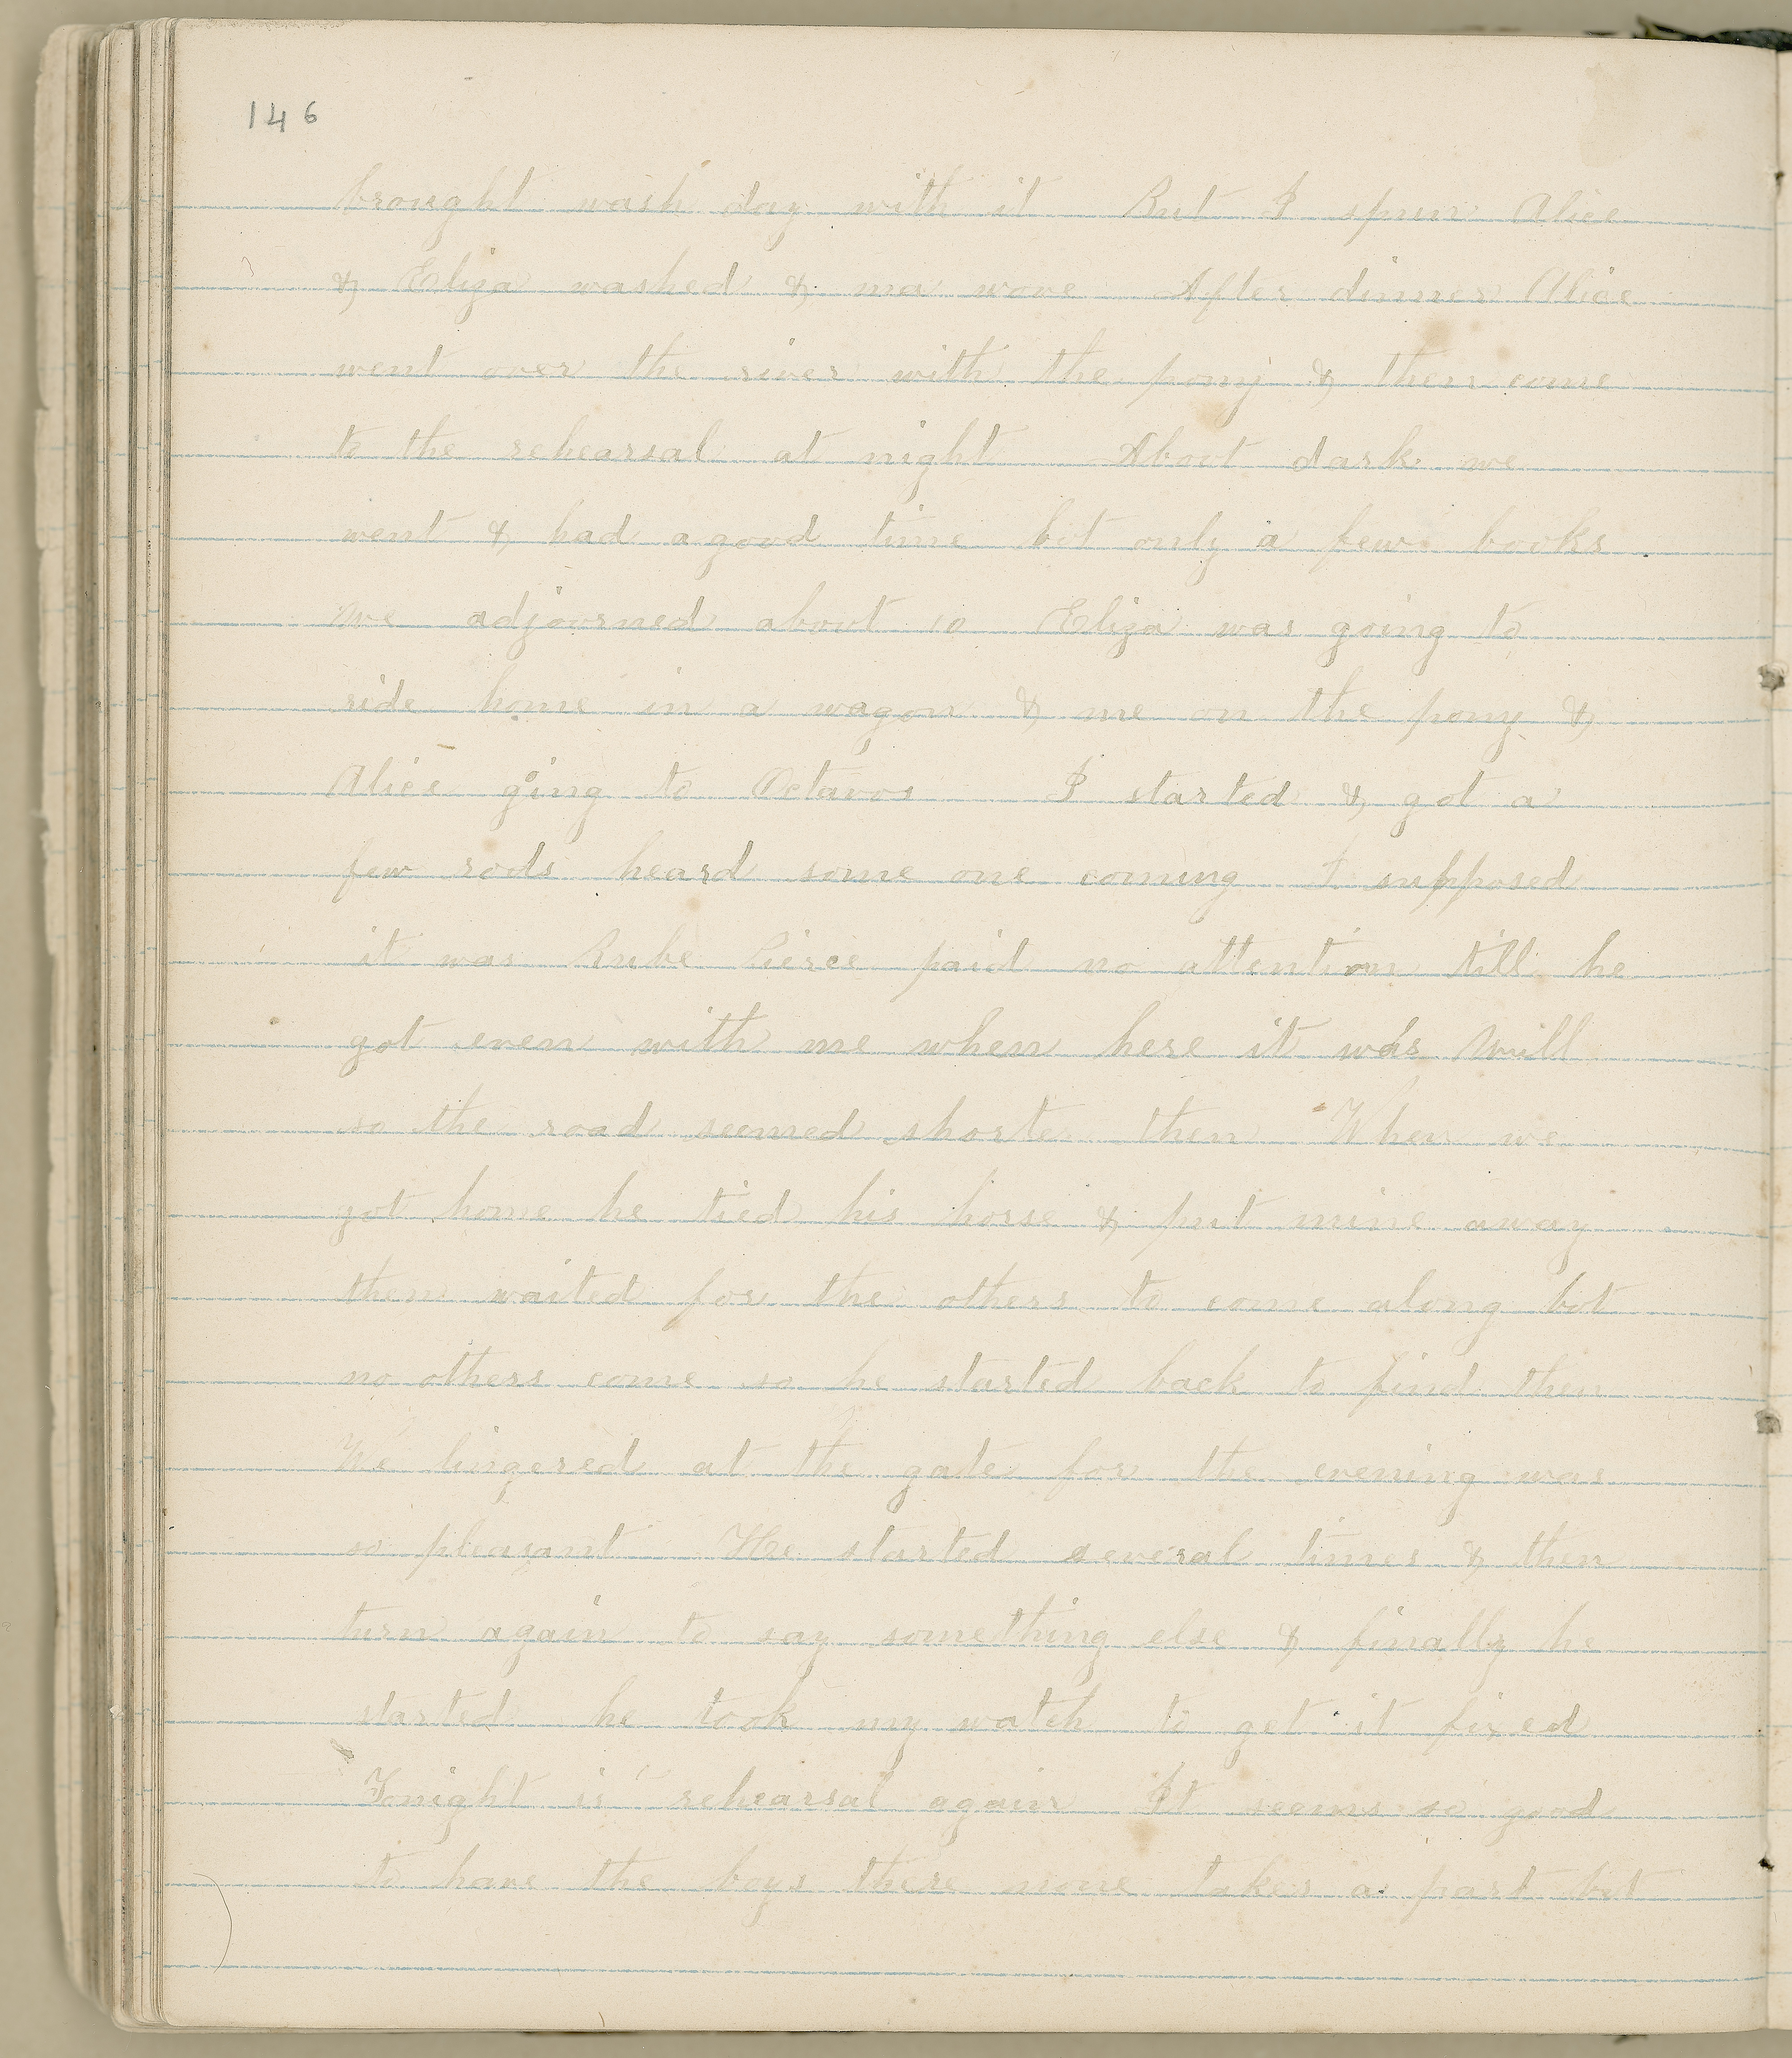 146
brought wash day with it But I spun Alice
& Eliza washed & ma wove After dinner Alice
went over the river with the pony & then come
to the rehearsal at night About dark we
went & had a good time bot only a few books
we adjoorned aboot 10 Eliza was going to
ride home in a wagon & me on the pony &
Alice going to Octavos I started & got a
few rods heard some one coming I supposed
it was Rube Pierce paid no attention till he
got even with me when here it was Will
so the road seemed shorte then When we
got home he tied his horse & put mine away
then waited for the others to come along bot
no others come so he started back to find then
We lingered at the gate for the evening was
so pleasant He started several times & then
turn again to say something else & finally he
started he took my watch to get it fixed
Tonight is rehearsal again It seems so good
to have the boys there none takes a part bot